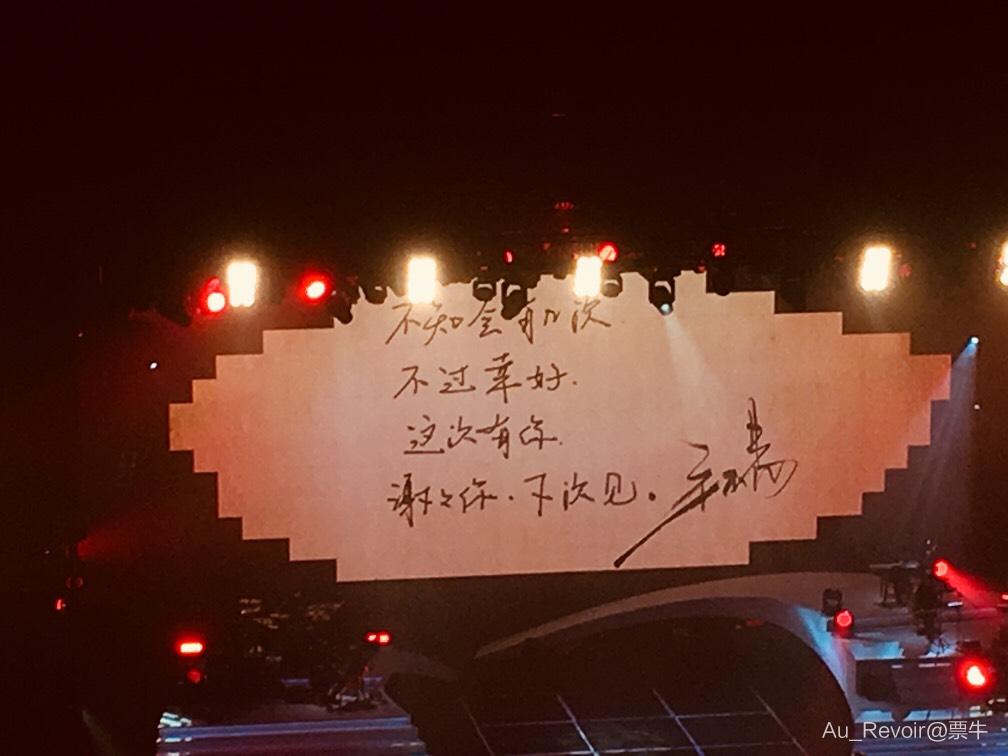 不知会有几次
不过幸好.
这次有你.
谢谢你.下次见。
Au_Revoir@票牛